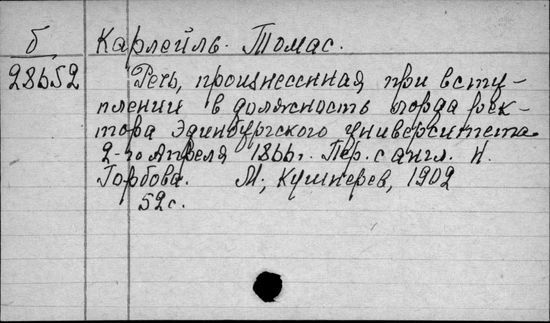 б Карлейль. Томас.
28652 Речь, произнесенная при всту-
плении в должность лорда рек-
тора Эдинбургского университета
2-го Апреля 1866 г. Пер. с англ. Н.
Горбова. М., Кушнерев, 1902
52 с.